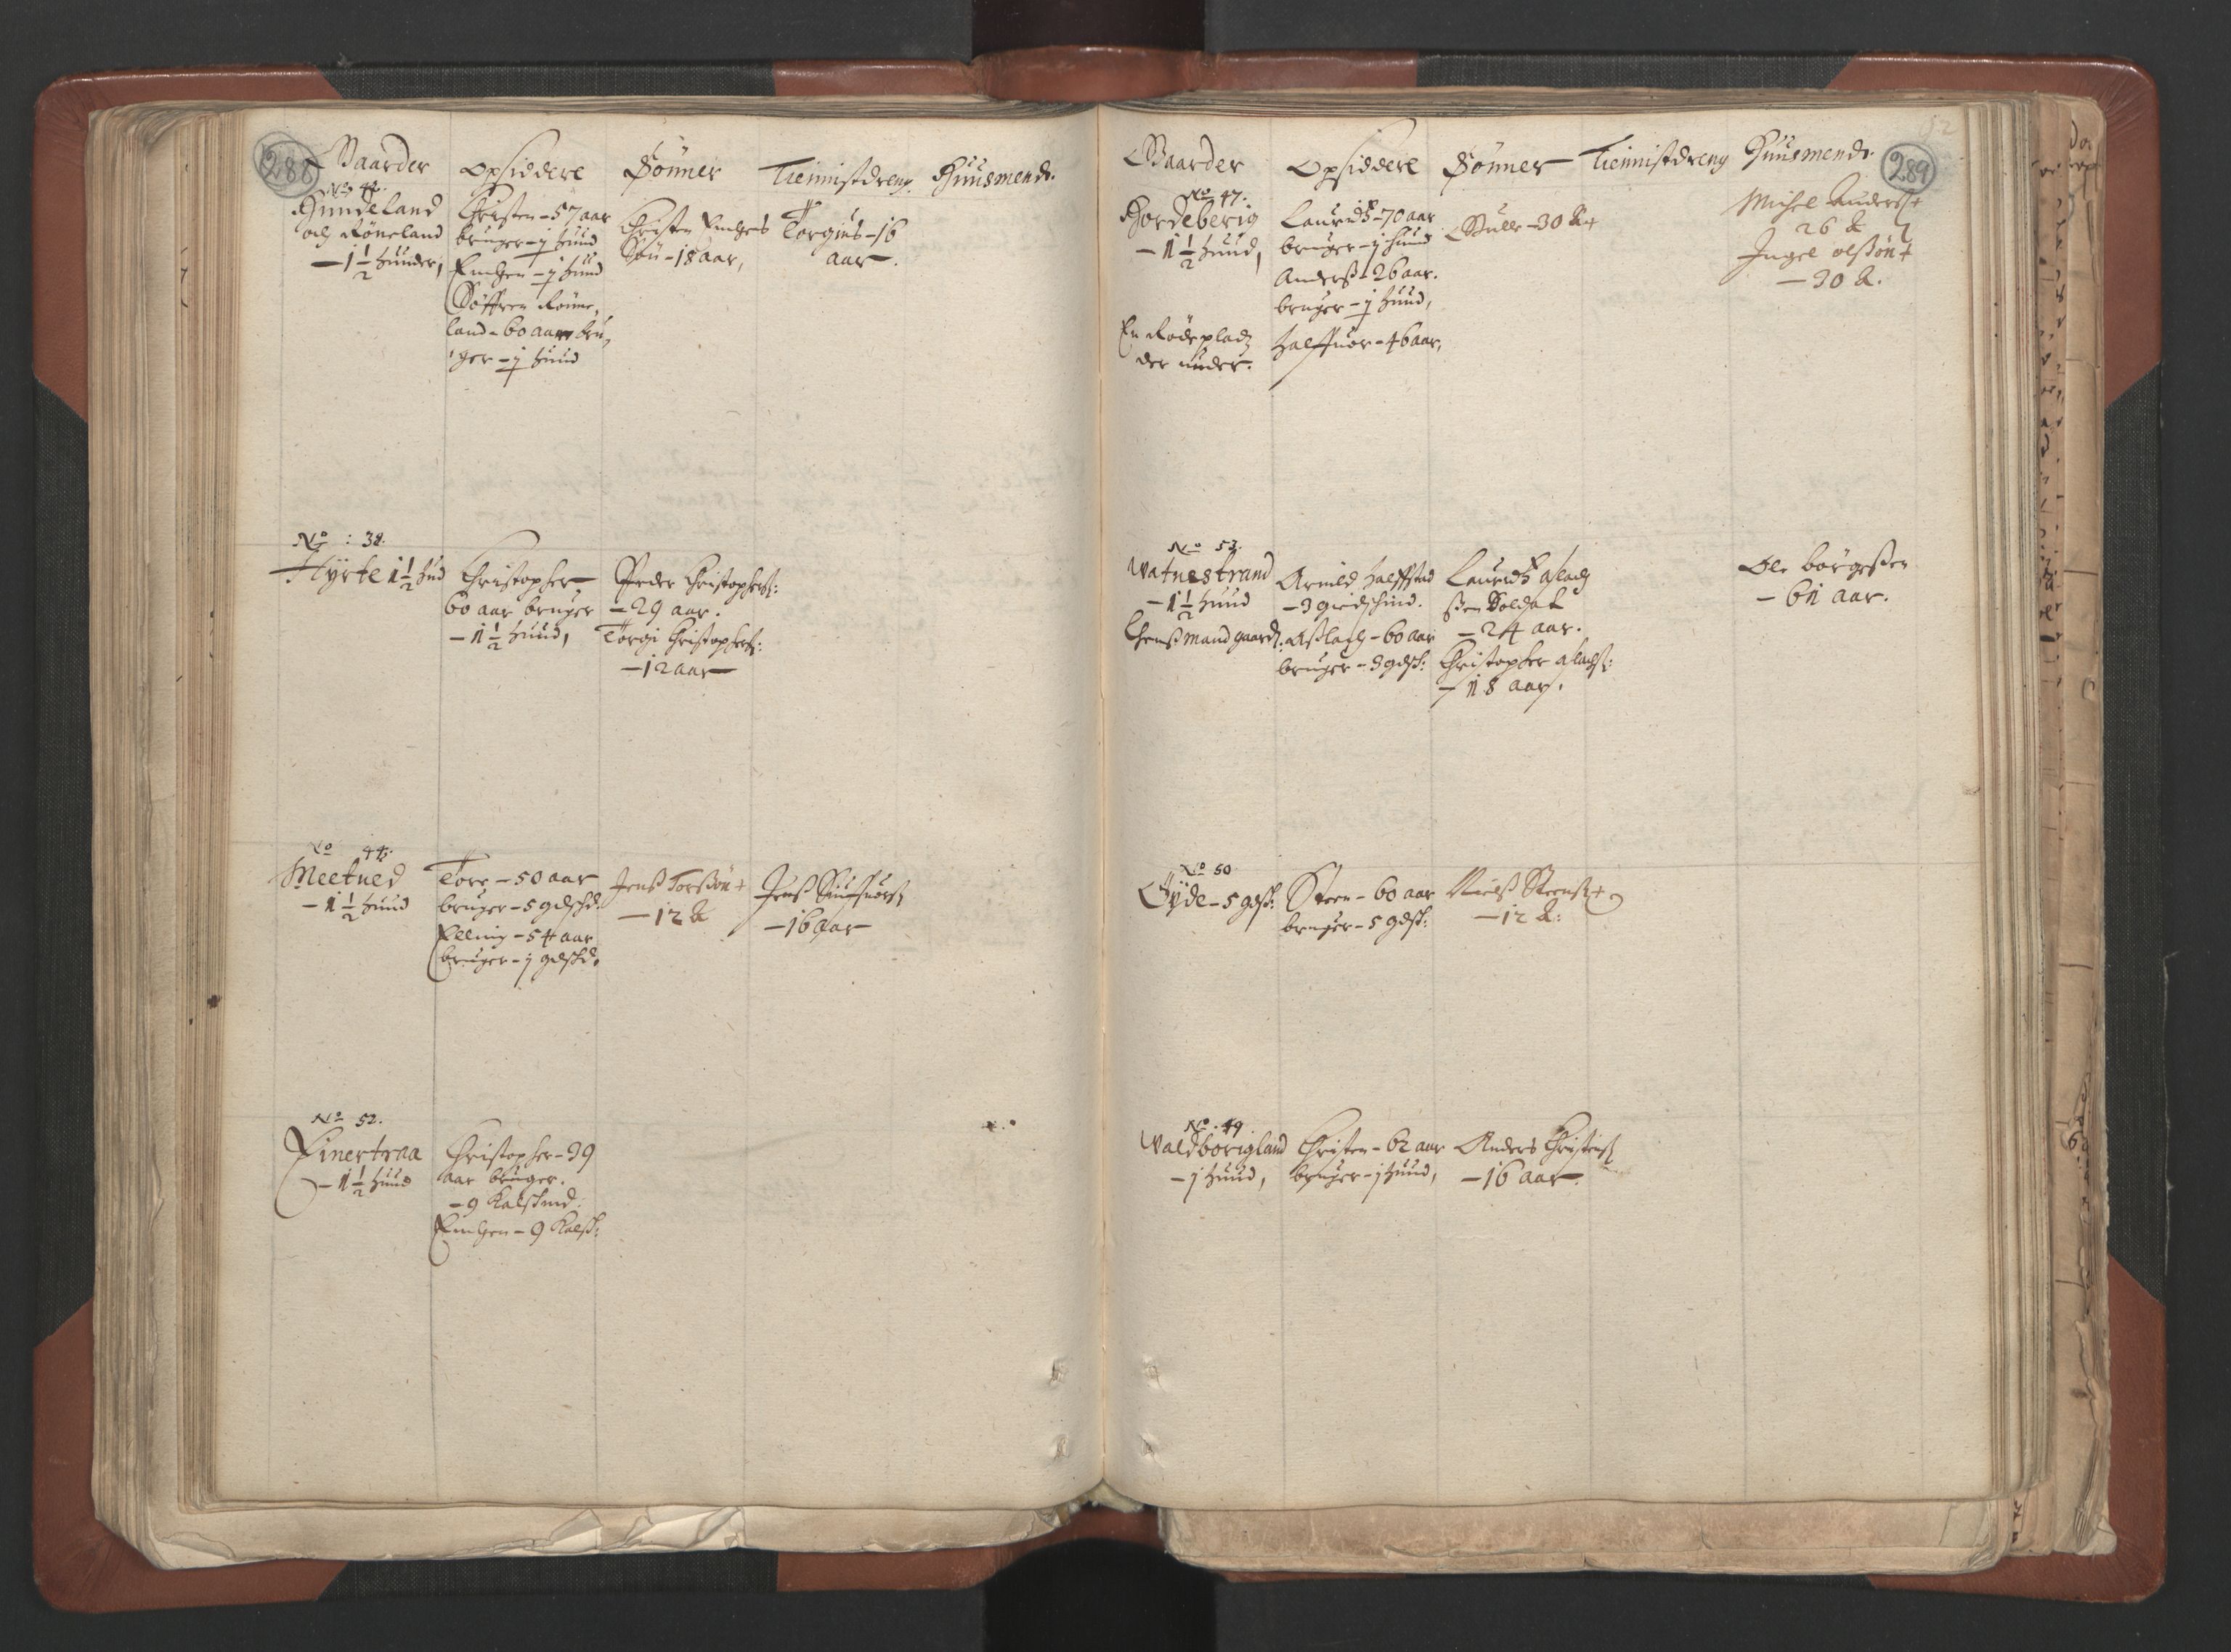 288
Gaarder Opsiddere Sönner Tiennistdreng Huusmend.
No 42.
Hundeland
och Röneland
– 1 1/2 hunder,
Christen – 57 aar
bruger – j huud
Enchen – j huud
Söffren Röine,
land – 60 aar bru,
ger – j huud
Christen Enches
Sön – 18 aar,
Torgius – 16
aar.
No : 38.
Hyrte 1 1/2 hud
Christopher
60 aar bruger
– 1 1/2 huud,
Peder Christophers:
– 29 aar.
Torgi Christophers:
– 12 aar
No 44.
Meetued
– 1 1/2 huud
Tore – 50 aar
bruger – 5 gdschd.
Elling – 54 aar
bruger – j gdschd.
Jenß Torßön +
– 12 &
Jenß
– 16 aar
No 52.
Einertraa
– 1 1/2 huud
Christopher – 39
aar bruger.
– 9 Kalschind:
Enchen – 9 Kalsch:
289
Gaarder Opsiddere Sönner Tienistdreng Huusmend.
No 47.
Hordeberig
– 1 1/2 huud,
En Rödepladz
der under.
Lauridtz – 70 aar
bruger – j huud
Anderß – 26 aar.
bruger – j huud,
Halffuor – 46 aar,
Gulle – 30 & +
Michel Anderß +
26 &
Ingel olßön +
– 30 &.
No 53.
Watnestrand
– 1 1/2 huud
Lhenßmand gaard.
Arnild halffstad
– 3 giedschind.
Aßlach – 60 aar
bruger – 3 gdsch:
Lauridtz aslach
ßen Soldat
– 24 aar.
Christopher aslachs:
– 18 aar.
Ole börgeßen
– 61 aar.
No 50
Gyde – 5 gdsch:
Steen – 60 aar
bruger – 5 gdsch:
Nielß Steenß +
– 12 &:
No. 49.
Waldborigland
– j huud,
Christen – 62 aar
bruger – j huud,
Anders Christenß
– 16 aar.